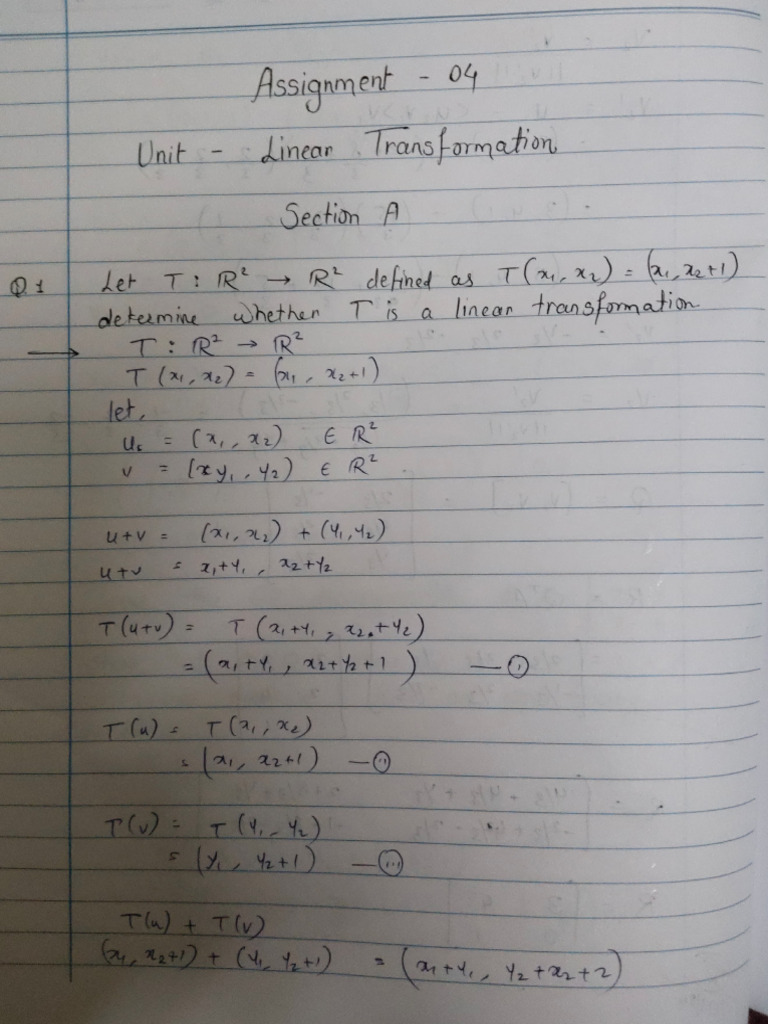 Assignment - 04
Unit - Linear Transformation
Section A
Q1 Let T : ℝ² → ℝ² defined as T(x₁, x₂) = (x₁, x₂+1)
determine whether T is a linear transformation
→ T : ℝ² → ℝ²
T(x₁, x₂) = (x₁, x₂+1)
let,
u = (x₁, x₂) ∈ ℝ²
v = (y₁, y₂) ∈ ℝ²
u+v = (x₁, x₂) + (y₁, y₂)
u+v = x₁+y₁, x₂+y₂
T(u+v) = T(x₁+y₁, x₂+y₂)
= (x₁+y₁, x₂+y₂+1) — (i)
T(u) = T(x₁, x₂)
= (x₁, x₂+1) — (ii)
T(v) = T(y₁, y₂)
= (y₁, y₂+1) — (iii)
T(u) + T(v)
(x₁, x₂+1) + (y₁, y₂+1) = (x₁+y₁, y₂+x₂+2)